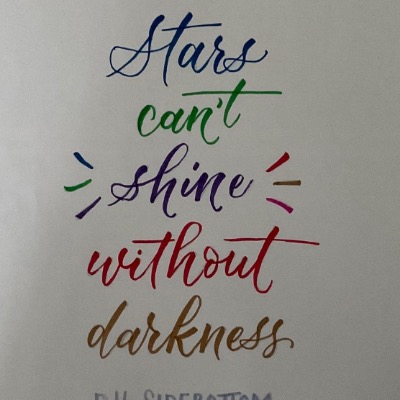 Stars
can't
shine
without
darkness
D.H. SIDEBOTTOM